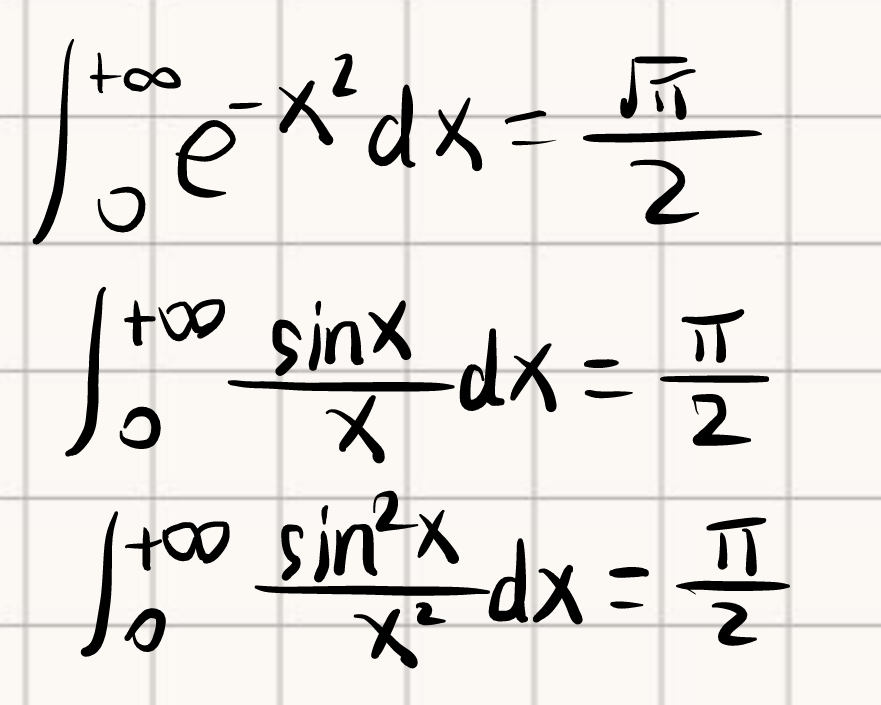 ∫₀^{+∞} e^{-x²} dx = √π/2
∫₀^{+∞} sinx/x dx = π/2
∫₀^{+∞} sin²x/x² dx = π/2